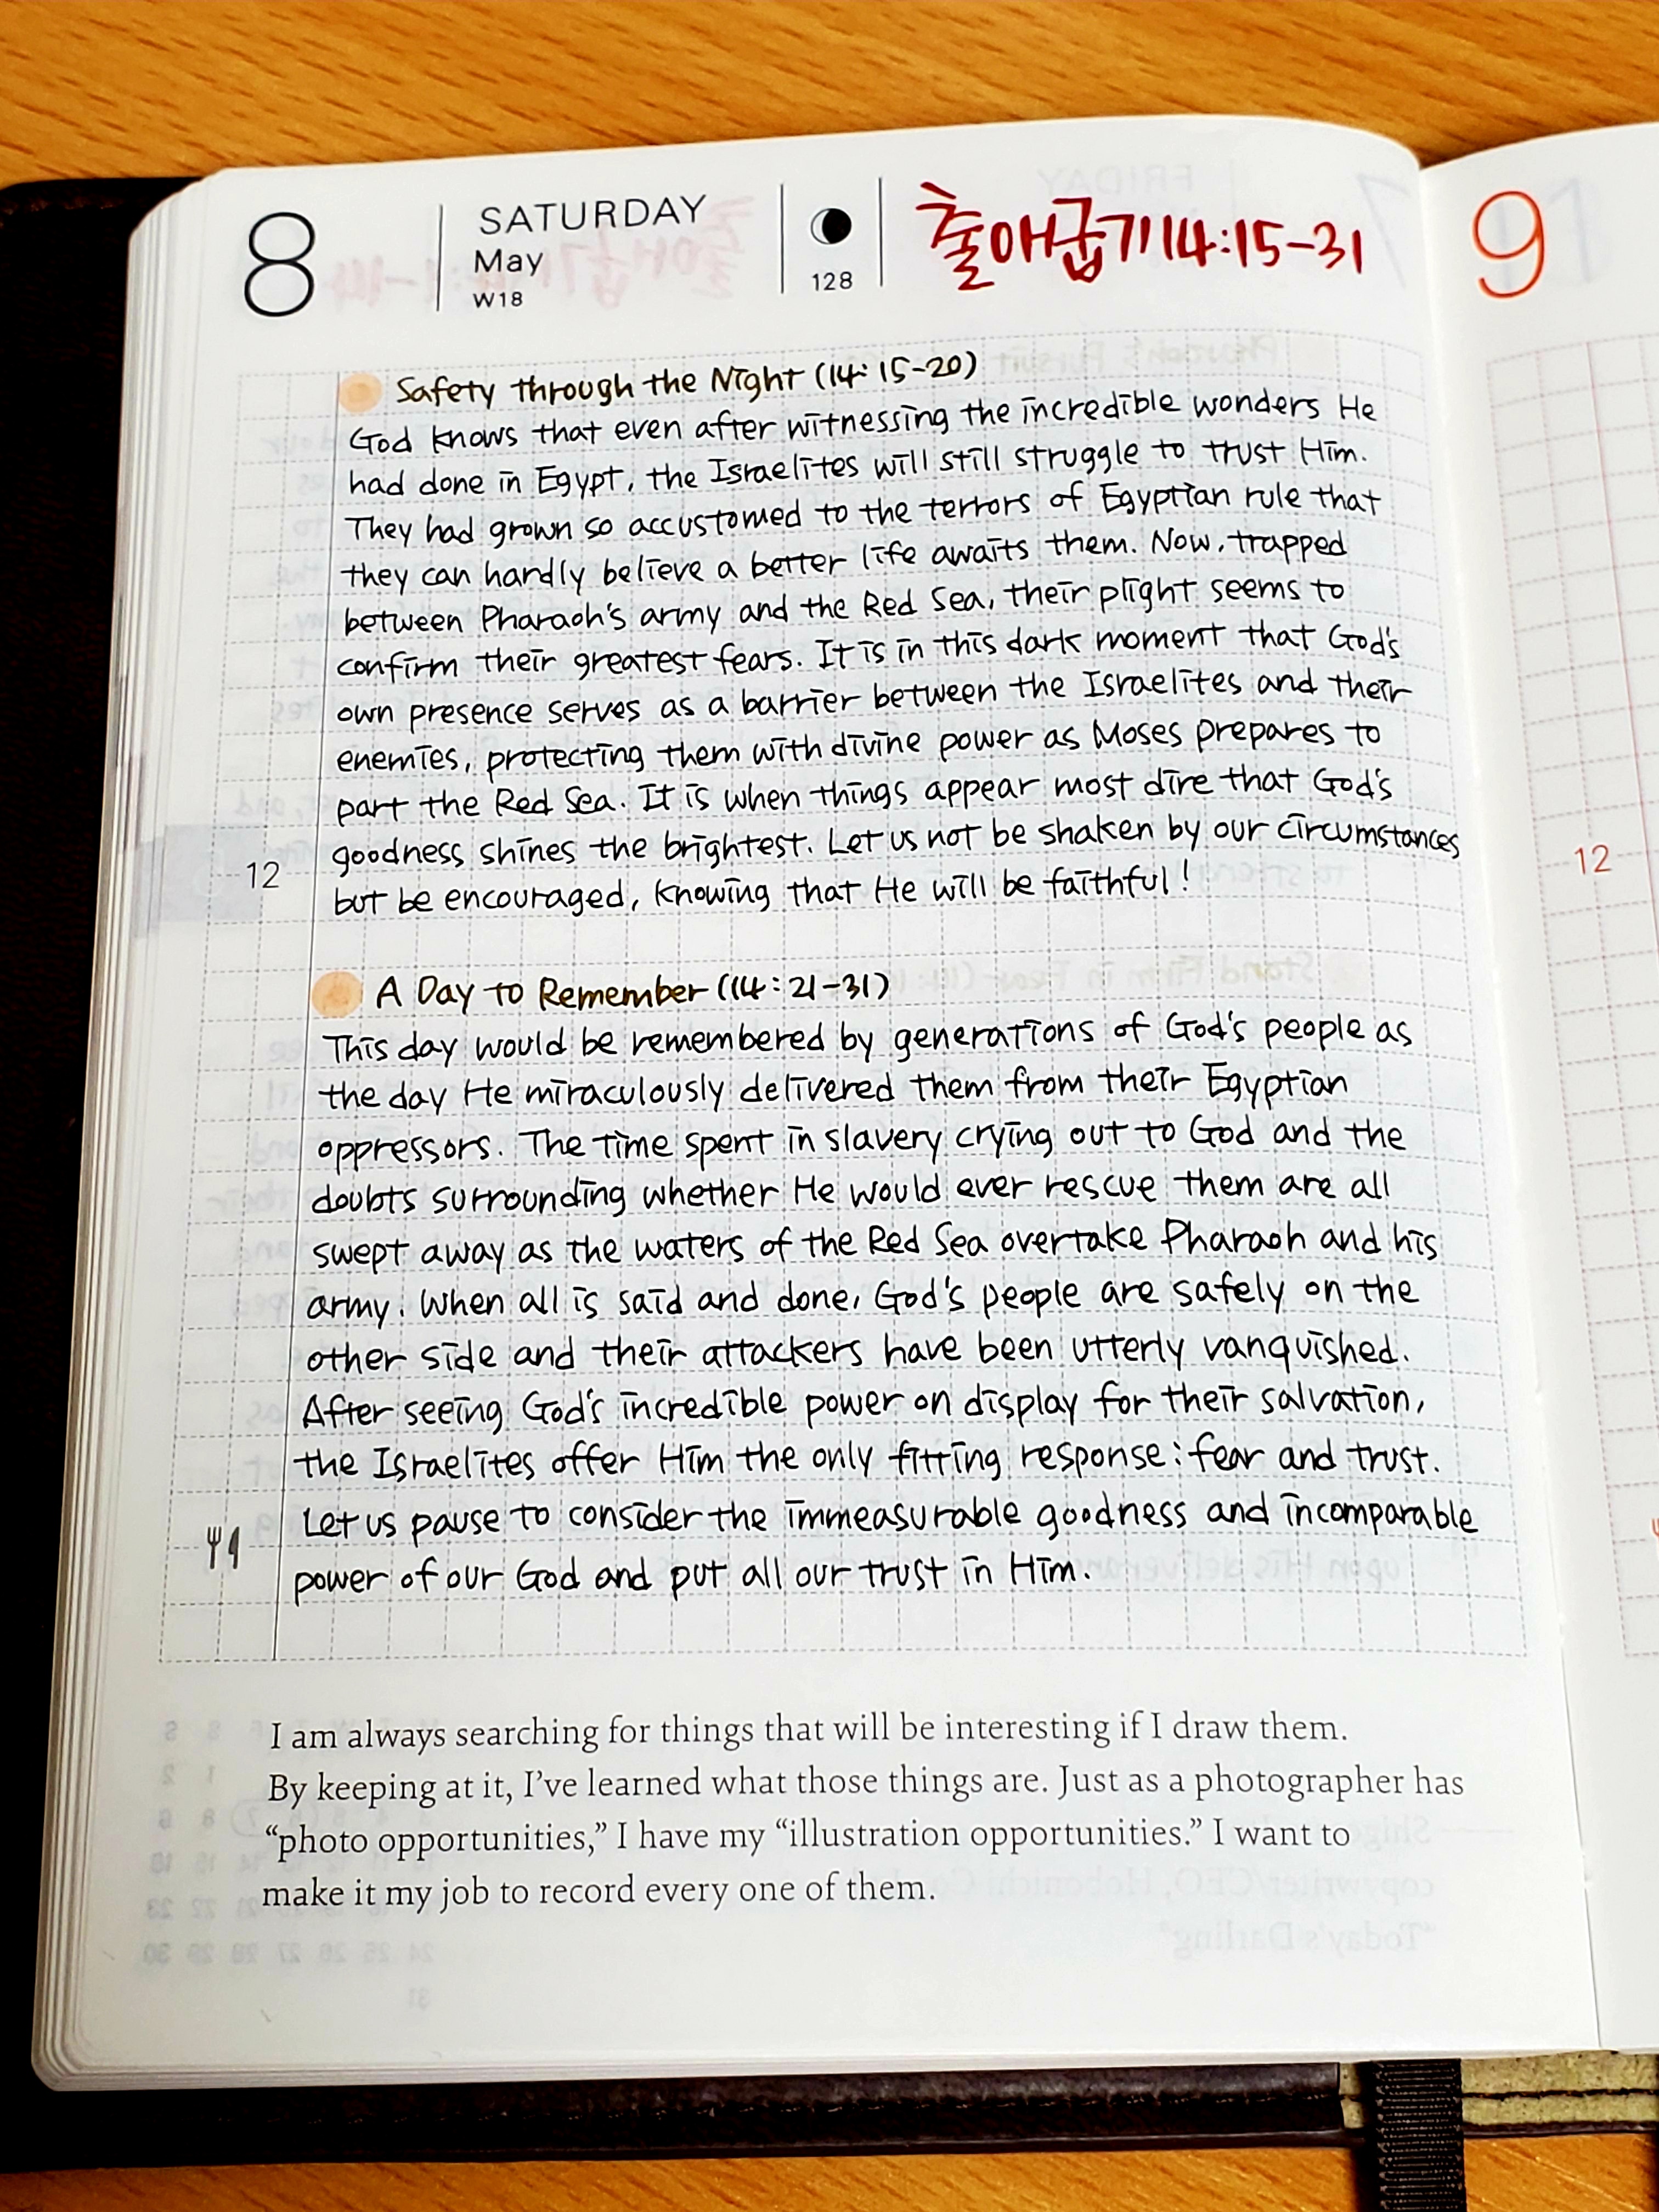 8
SATURDAY
May
W18
128
출애굽기 14:15-31
9
Safety through the Night (14:15-20)
God knows that even after witnessing the incredible wonders He
had done in Egypt, the Israelites will still struggle to trust Him.
They had grown so accustomed to the terrors of Egyptian rule that
they can hardly believe a better life awaits them. Now, trapped
between Pharaoh's army and the Red Sea, their plight seems to
confirm their greatest fears. It is in this dark moment that God's
own presence serves as a barrier between the Israelites and their
enemies, protecting them with divine power as Moses prepares to
part the Red Sea. It is when things appear most dire that God's
goodness shines the brightest. Let us not be shaken by our circumstances
12
but be encouraged, knowing that He will be faithful!
12
A Day to Remember (14:21-31)
This day would be remembered by generations of God's people as
the day He miraculously delivered them from their Egyptian
oppressors. The time spent in slavery crying out to God and the
doubts surrounding whether He would ever rescue them are all
swept away as the waters of the Red Sea overtake Pharaoh and his
army. When all is said and done, God's people are safely on the
other side and their attackers have been utterly vanquished.
After seeing God's incredible power on display for their salvation,
the Israelites offer Him the only fitting response: fear and trust.
Let us pause to consider the immeasurable goodness and incomparable
power of our God and put all our trust in Him.
I am always searching for things that will be interesting if I draw them.
By keeping at it, I've learned what those things are. Just as a photographer has
“photo opportunities,” I have my “illustration opportunities.” I want to
make it my job to record every one of them.